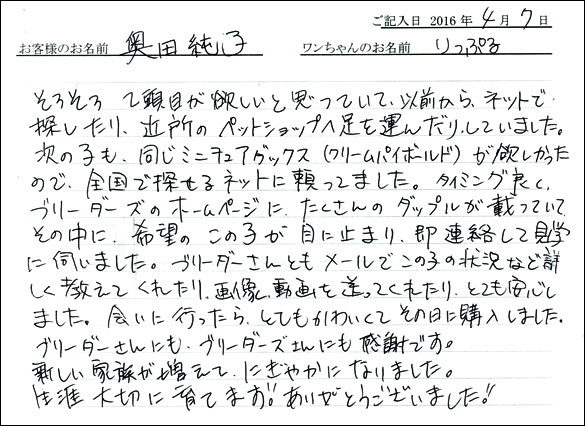 ご記入日 2016年 4月 7日
お客様のお名前 奥田純子 ワンちゃんのお名前 りっぷる
そろそろ 2頭目が欲しいと思っていて、以前から、ネットで
探したり、近所のペットショップへ足を運んだりしていました。
次の子も、同じミニチュアダックス(クリームパイボールド)が欲しかった
ので、全国で探せるネットに頼ってました。タイミング良く、
ブリーダーズのホームページに、たくさんのダップルが載っていて
その中に、希望のこの子が目に止まり、即連絡して見学
に伺いました。ブリーダーさんともメールでこの子の状況など詳
しく教えてくれたり、画像、動画を送ってくれたり、とても安心し
ました。会いに行ったら、とてもかわいくてその日に購入しました。
ブリーダーさんにも、ブリーダーズさんにも感謝です。
新しい家族が増えて、にぎやかになりました。
生涯大切に育てます!!ありがとうございました!!